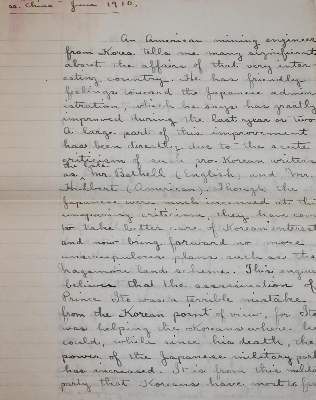 ss. China" June 1910.
An American mining engineer
from Korea tells me many significant
about the affairs of that very inter-
esting country. He has friendly
feelings toward the Japanese admin-
istration, which he says has greatly
improved during the last year or two
A large part of this improvement
has been directly due to the acute
criticism of such pro-Korean writers
the late
as Mr. Bethell (English) and Mr.
Hulbert (American). Though the
Japanese were much incensed at this
criticism, they have come
to take better care of Korean interest
and now bring forward no more
unscrupulous plans such as the
Nagamori land scheme. This engin
believes that the assassination of
Prince Ito was a terrible mistake
from the Korean point of view, for Ito
was helping the Koreans where he
could, while since his death, the
power of the Japanese military party
has increased. It is from this milita
party that Koreans have most to fea